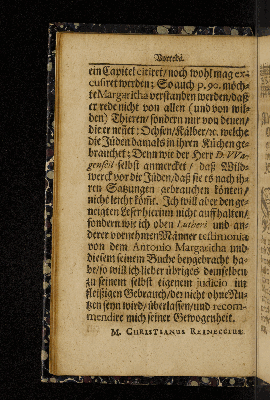 Vorrede.
ein Capitel citiret / noch wohl mag ex-
cusiret werden; So auch p. 90. möch-
te Margaritha verstanden werden / daß
er rede nicht von allen (und von wil-
den) Thieren / sondern nur von denen /
die er neñet: Ochsen / Kälber / ꝛc. welche
die Jüden damals in ihren Küchen ge-
brauchet; Denn wie der Herr D. Wa-
genseil selbst anmercket / daß Wild-
werck vor die Jüden / daß sie es nach ih-
ren Satzungen gebrauchen könten /
nicht leicht kom̃t. Ich will aber den ge-
neigten Leser hierinn nicht auffhalten /
sondern wie ich oben Lutheri und an-
derer vornehmen Männer testimonia
von dem Antonio Margaritha und
diesem seinem Buche beygebracht ha-
be / so will ich lieber übriges demselben
zu seinem selbst eigenem judicio im
fleißigen Gebrauch / der nicht ohne Nu-
tzen seyn wird / überlassen / und recom-
mendire mich seiner Gewogenheit.
M. CHRISTIANUS REINECCIUS.